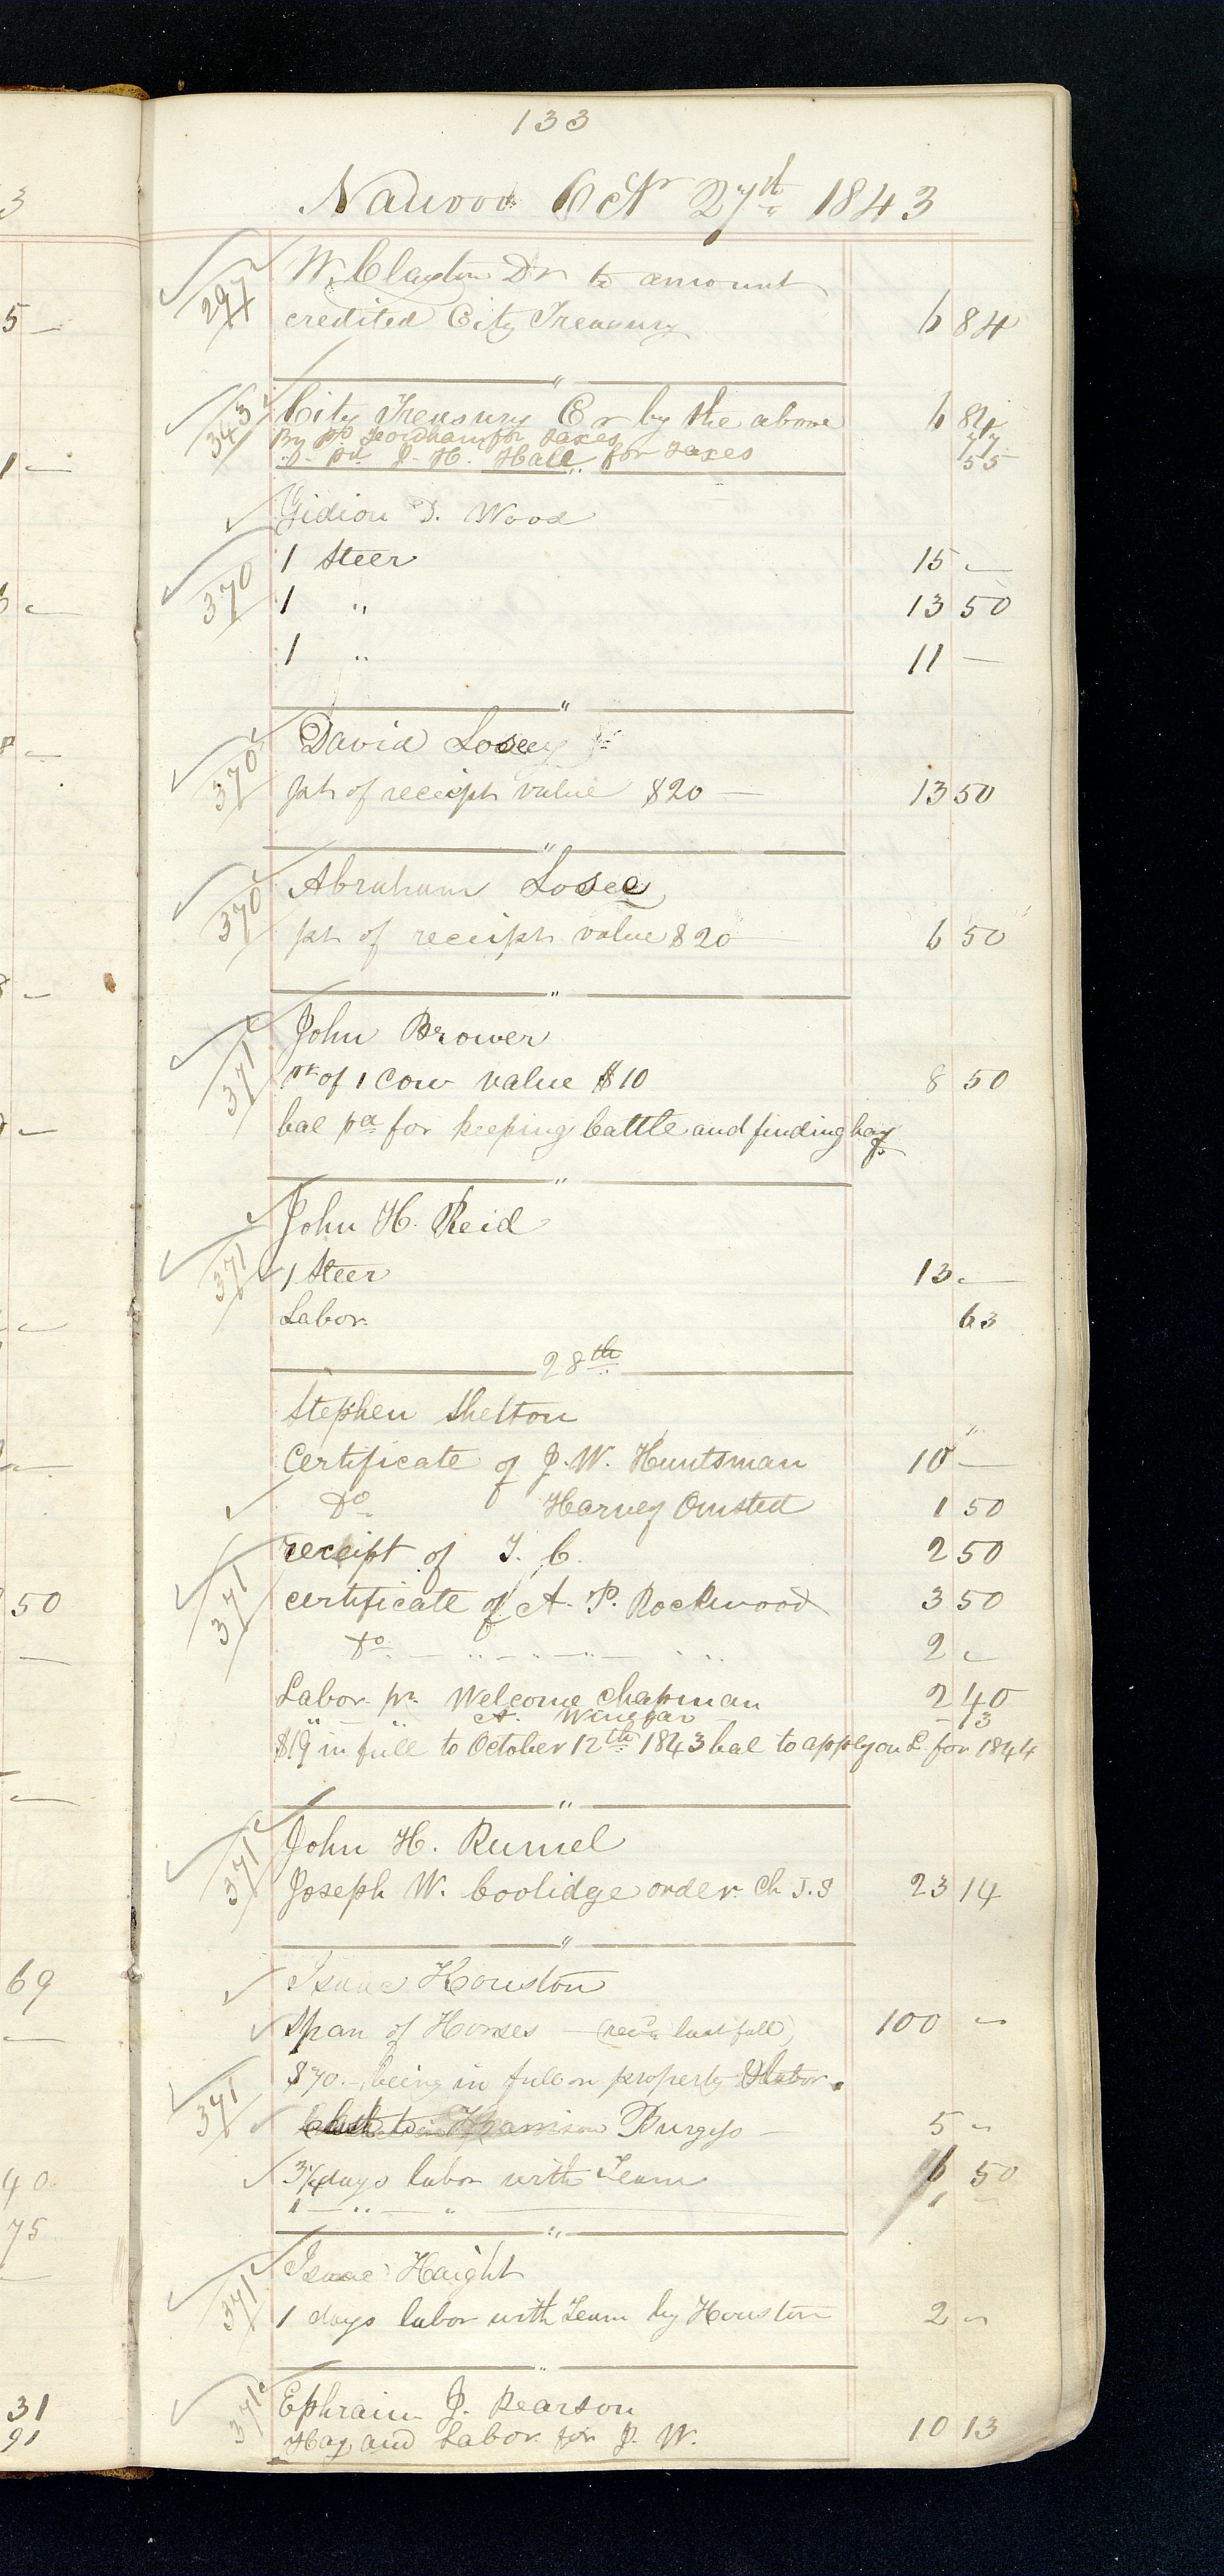 133
Nauvoo Octr 27th 1843
297 W. Clayton Dr to amount
credited City Treasury 6 84
"
343 City Treasury Cr by the above 6 84
By pd for taxes 77
" pd J. H. Hall for taxes 55
Gidion D. Wood
1 Steer 15 —
370 1 " 13 50
1 " 11 —
"
David Losey Jr
370 pt of receipt value $20 — 13 50
"
Abraham Losee
370 pt of receipt value $20 6 50
"
John Brower
371 pt of 1 Cow value $10 8 50
bal pd for keeping Cattle and finding hay
"
John H. Reid
371 1 Steer 13 —
Labor 63
28th
Stephen Shelton
Certificate of J. W. Huntsman 10 —
Do Harvey Omsted 1 50
receipt of T. C. 2 50
371 certificate of A. P. Rockwood 3 50
Do — " — " — " " 2 —
Labor pr Welcome Chapman 2 40
" — " A. Winegar — 13
$19 in full to October 12th 1843 bal to apply on L. for 1844
"
John H. Rumel
371 Joseph W. Coolidge order Ch J. S 23 14
"
Isaac Houston
Span of Horses — (recd last fall) 100 —
$70. — being in full on property & labor.
371 Harrison Burgess — 5 —
3 1/4 days labor with Team 6 50
1 — " — " 1 —
"
Isaac Haight
371 1 days labor with Team by Houston 2 —
"
371 Ephraim J. Pearson
Hay and Labor for J. W. 10 13
3
5 —
1 —
50
69
40
75
31
91